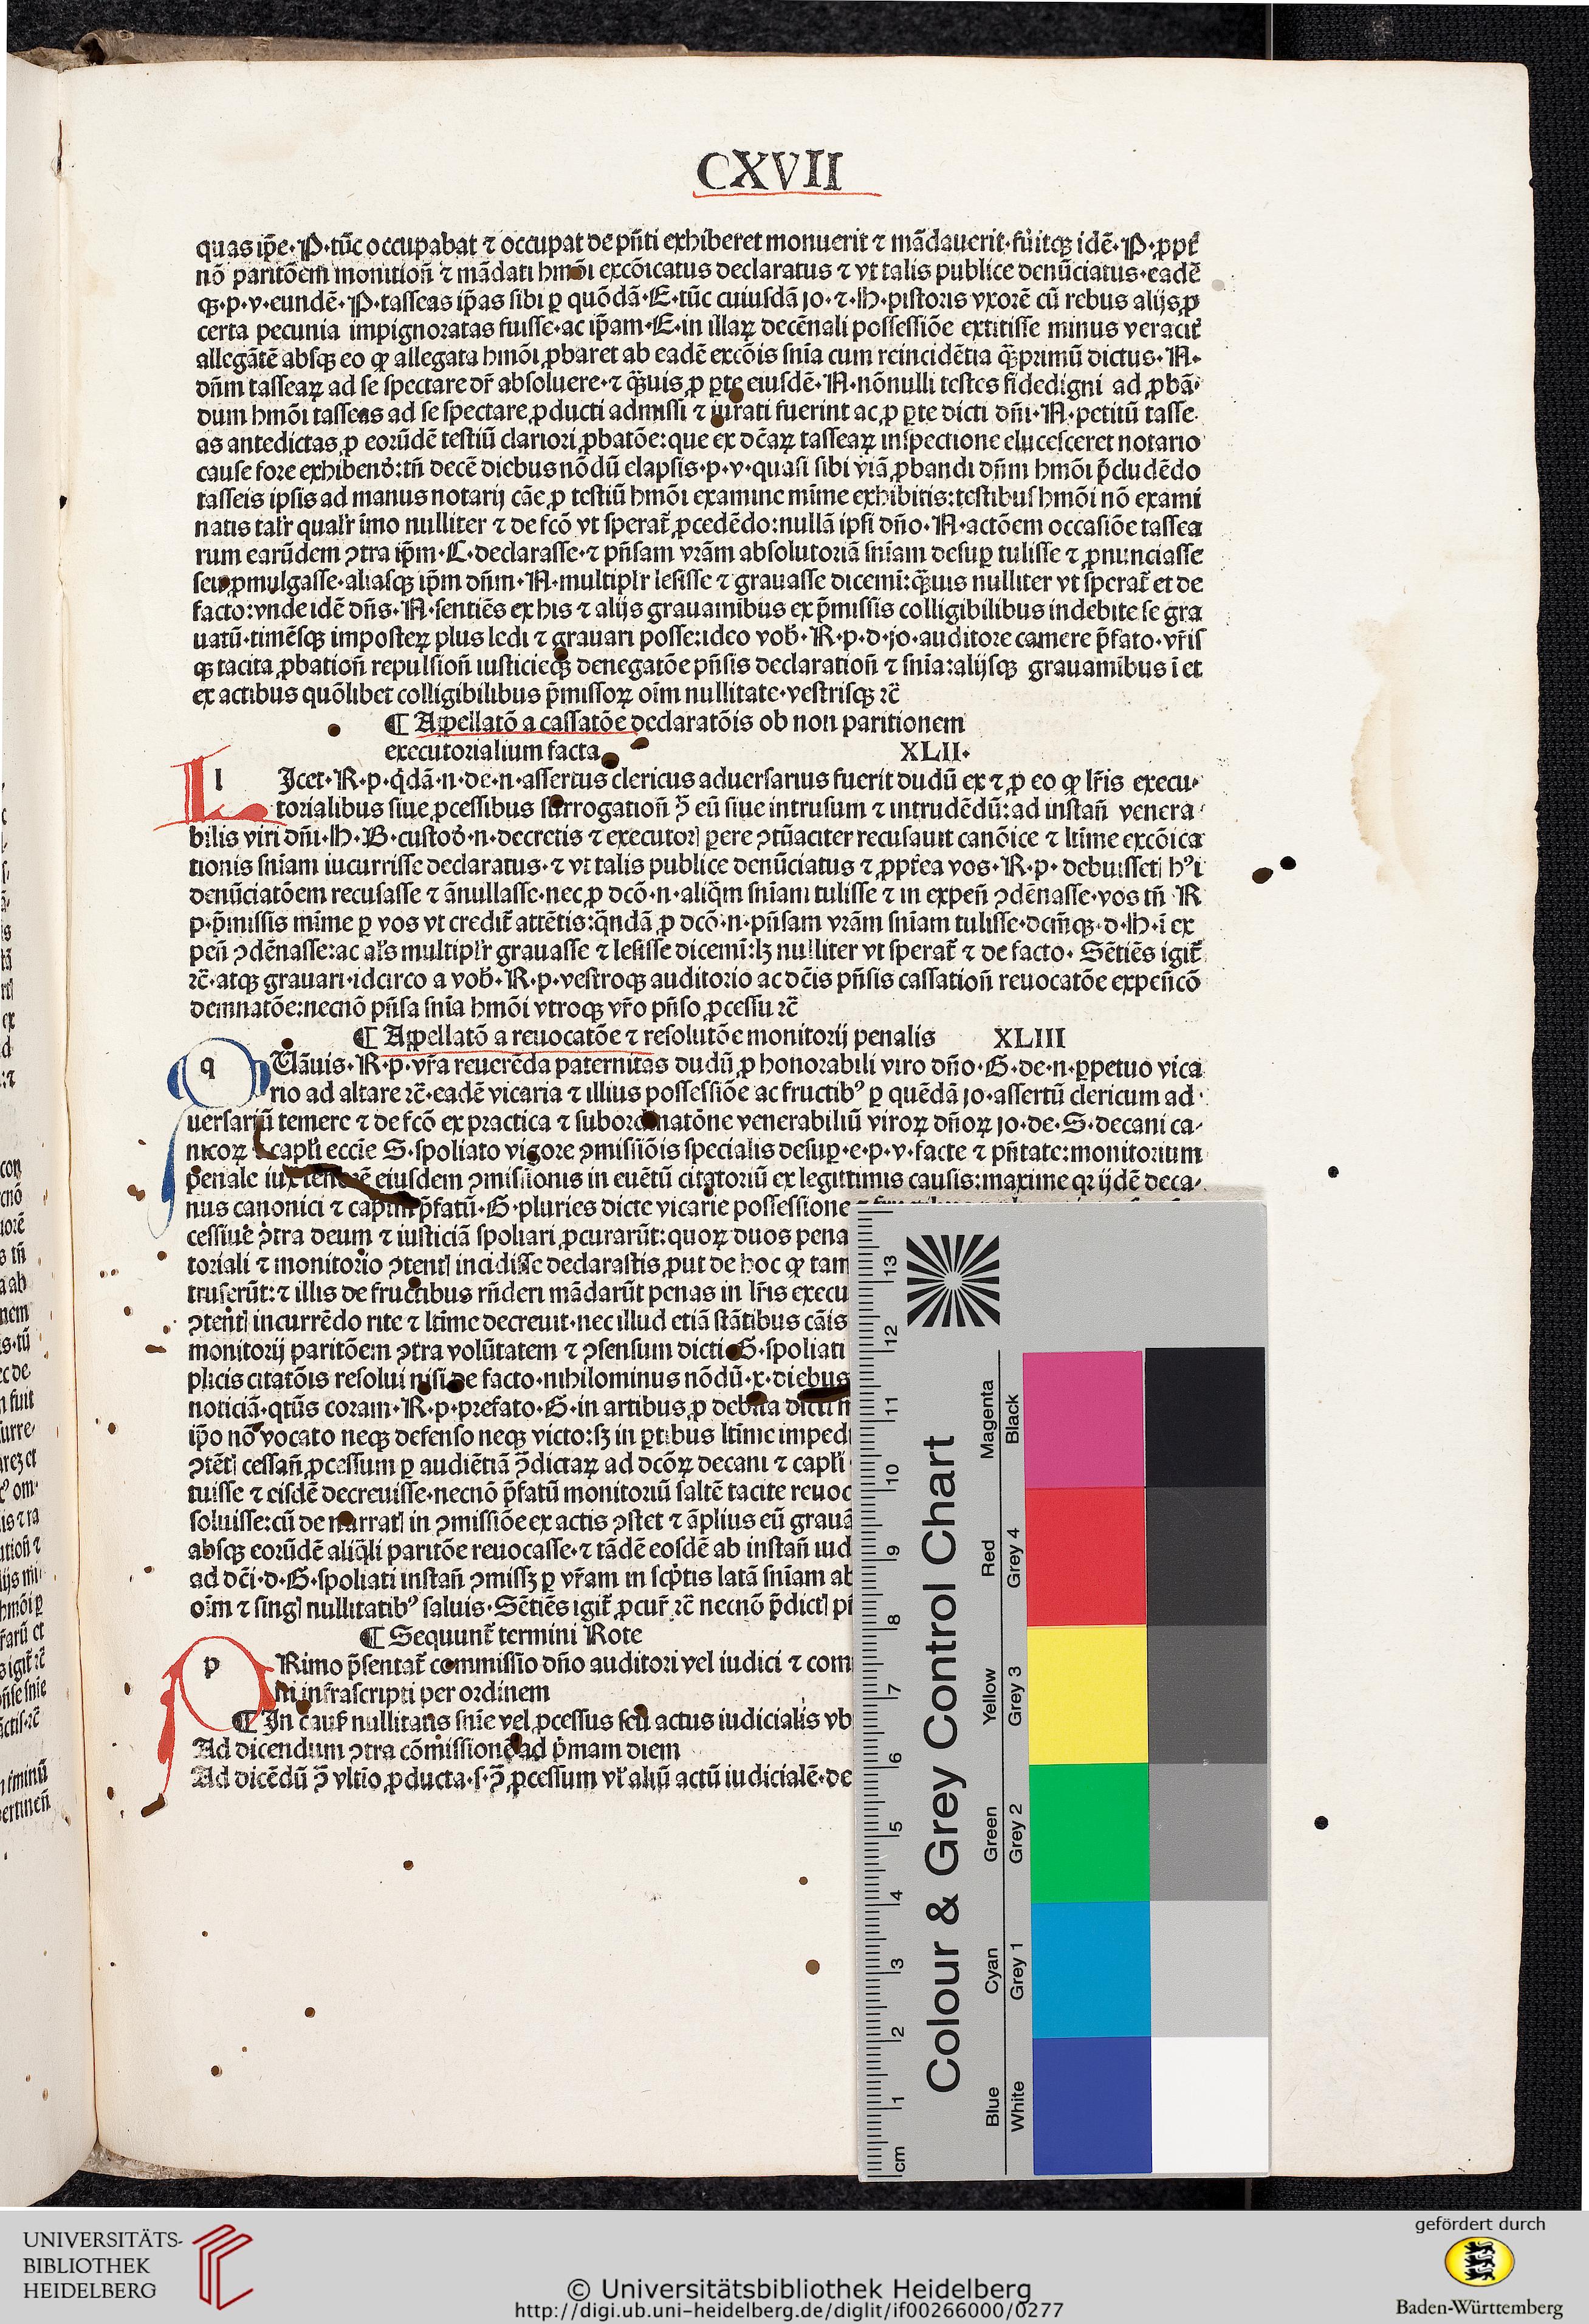 CXVII
quas ip̃e·P·tũc occupabat ⁊ occupat de pñti exhiberet monuerit ⁊ mãdauerit·fuitqꝫ idẽ·P·ꝓpt̃
nõ paritõem monitioñ ⁊ mãdati hmõi excõicatus declaratus ⁊ vt talis publice denũciatus·eadẽ
qꝫ·p·v·eundẽ·P·tasseas ip̃as sibi ꝑ quõdã·E·tũc cuiusdã jo·⁊·H·pistoris vxorẽ cũ rebus alijs ꝓ
certa pecunia impignoratas fuisse·ac ip̃am·E·in illaꝝ decẽnali possessiõe extitisse minus veracit̃
allegãtẽ absqꝫ eo ꝙ allegata hmõi ꝓbaret ab eadẽ excõis snĩa cum reincidẽtia q̃ꝫprimũ dictus·N·
dñm tasseaꝝ ad se spectare dr̃ absoluere·⁊ q̃ꝫuis ꝓ ꝑte eiusdẽ·N·nõnulli testes fidedigni ad ꝓbã
dum hmõi tasseas ad se spectare ꝓducti admissi ⁊ iurati fuerint ac ꝓ ꝑte dicti dñi·N·petitũ tasse
as antedictas ꝓ eorũdẽ testiũ clariori ꝓbatõe:que ex dc̃aꝝ tasseaꝝ inspectione elucesceret notario
cause fore exhibendꝰ:tñ decẽ diebus nõdũ elapsis·p·v·quasi sibi viã ꝓbandi dñm hmõi p̃cludẽdo
tasseis ipsis ad manus notarij cãe ꝓ testiũ hmõi examine mĩme exhibitis:testibus hmõi nõ exami
natis talr̃ qualr̃ ĩmo nulliter ⁊ de fcõ vt sperat̃ ꝓcedẽdo:nullã ipsi dño·N·actõem occasiõe tassea
rum earũdem ɔtra ip̃m·C·declarasse·⁊ pñsam vr̃am absolutoriã snĩam desuꝑ tulisse ⁊ ꝓnunciasse
seu ꝓmulgasse·aliasqꝫ ip̃m dñm·N·multiplr̃ lesisse ⁊ grauasse dicemĩ:q̃ꝫuis nulliter vt sperat̃ et de
facto:vnde idẽ dñs·N·sentiẽs ex his ⁊ alijs grauaminibus ex p̃missis colligibilibus indebite se gra
uatũ·timẽsqꝫ imposteꝝ plus ledi ⁊ grauari posse:ideo vob̃·R·p·d·jo·auditore camere p̃fato·vr̃is
qꝫ tacita ꝓbationñ repulsioñ iusticieqꝫ denegatõe pñsis declarationñ ⁊ snĩa:alijsqꝫ grauamĩbus ĩ et
ex actibus quõlibet colligibilibus p̃missoꝝ oĩm nullitate·vestrisqꝫ ⁊c̃
¶ Appellatõ a cassatõe declaratõis ob non paritionem
executorialium facta XLII·
l Icet·R·p·q̃dã·n·de·n·assertus clericus aduersarius fuerit dudũ ex ⁊ ꝓ eo ꝙ lr̃is execu·
torialibus siue ꝓcessibus surrogationñ ɔ̃ eũ siue intrusum ⁊ intrudẽdũ:ad instañ venera
bilis viri dñi·H·B·custod̾·n·decretis ⁊ executorꝭ ꝑere ɔtũaciter recusauit canõice ⁊ lt̃ime excõica
tionis snĩam incurrisse declaratus·⁊ vt talis publice denũciatus ⁊ ꝓpt̃ea vos·R·p·debuissetꝭ hꝰi
denũciatõem recusasse ⁊ ãnullasse·nec ꝓ dcõ·n·aliq̃m snĩam tulisse ⁊ in expeñ ɔdẽnasse·vos tñ·R
p·p̃missis mĩme ꝑ vos vt credit̃ attẽtis:q̃ndã ꝓ dcõ·n·pñsam vr̃am snĩam tulisse·dcm̃qꝫ·d·H·ĩ ex
peñ ɔdẽnasse:ac al's multiplr̃ grauasse ⁊ lesisse dicemĩ:lꝫ nulliter vt sperat̃ ⁊ de facto·Sẽtiẽs igit̃
⁊c̃·atqꝫ grauari·idcirco a vob̃·R·p·vestroqꝫ auditorio ac dc̃is pñsis cassationñ reuocatõe expeñcõ
demnatõe:necnõ pñsa snĩa hmõi vtroqꝫ vr̃o pñso ꝓcessu ⁊c̃
¶ Appellatõ a reuocatõe ⁊ resolutõe monitorij penalis XLIII
q Uãuis·R·p·vr̃a reuerẽda paternitas dudũ ꝓ honorabili viro dño·G·de·n·ꝑpetuo vica
rio ad altare ⁊c̃·eadẽ vicaria ⁊ illius possessiõe ac fructibꝰ ꝑ quẽdã jo·assertũ clericum ad·
uersariũ temere ⁊ de fcõ ex practica ⁊ subordinatõne venerabiliũ viroꝝ dñoꝝ jo·de·S·decani ca·
nicoꝝ ⁊ capl'i eccl̃ie S·spoliato vigore ɔmissiõis specialis desuꝑ·e·p·v·facte ⁊ pñtate:monitorium
penale iuxta eiusdem ɔmissionis in euẽtũ citatoriũ ex legittimis causis:maxime qꝛ ijdẽ deca·
nus canonici ⁊ capitm̃ p̃fatũ·G·pluries dicte vicarie possessione
cessiue ɔtra deum ⁊ iusticiã spoliari ꝓcurarũt:quoꝝ duos pena
toriali ⁊ monitorio ɔtentꝭ incidisse declarastis ꝓut de hoc ꝙ tam
truserũt:⁊ illis de fructibus rñderi mãdarũt penas in lr̃is execu
ɔtentꝭ incurrẽdo rite ⁊ lt̃ime decreuit·nec illud etiã stãtibus cãis
monitorij paritõem ɔtra volũtatem ⁊ ɔsensum dicti·G·spoliati
plicis citatõis resolui nisi de facto·nihilominus nõdũ·x·diebus
noticiã·qtũs coram·R·p·prefato·G·in artibus ꝓ debita
ip̃o nõ vocato neqꝫ defenso neqꝫ victo:sꝫ in ꝑtibus lt̃ime imped
ɔtẽtꝭ cessañ ꝓcessum ꝑ audiẽtiã ɔ̃dictaꝝ ad dcõꝝ decani ⁊ capl'i
tuisse ⁊ eisdẽ decreuisse·necnõ p̃fatũ monitoriũ saltẽ tacite reuoc
soluisse:cũ de narratꝭ in ɔmissiõe ex actis ɔstet ⁊ ãplius eũ grauã
absqꝫ eorũdẽ aliq̃li paritõe reuocasse·⁊ tãdẽ eosdẽ ab instañ iud
ad dc̃i·d·G·spoliati instañ ɔmissꝫ ꝑ vr̃am in scp̃tis latã snĩam ab
oĩm ⁊ singꝭ nullitatibꝰ saluis·Sẽtiẽs igit̃ ꝓcur̃ ⁊c̃ necnõ p̃dictꝭ
¶ Sequunt̃ termini Rote
p Rimo p̃sentat̃ commissio dño auditori vel iudici ⁊ com
ni infrascripti per ordinem
¶ In caus̃ nullitatis snĩe vel ꝓcessus seu actus iudicialis vb
Ad dicendum ɔtra cõmissionẽ ad p̃mam diem
Ad dicẽdũ ɔ̃ vltĩo ꝓducta·s·ɔ̃ ꝓcessum vl' aliũ actũ iudicialẽ·de
Colour & Grey Control Chart
Magenta Red Yellow Green Cyan Blue
Black Grey 4 Grey 3 Grey 2 Grey 1 White
cm 1 2 3 4 5 6 7 8 9 10 11 12 13
UNIVERSITÄTS-
BIBLIOTHEK
HEIDELBERG
© Universitätsbibliothek Heidelberg
http://digi.ub.uni-heidelberg.de/diglit/if00266000/0277
gefördert durch
Baden-Württemberg